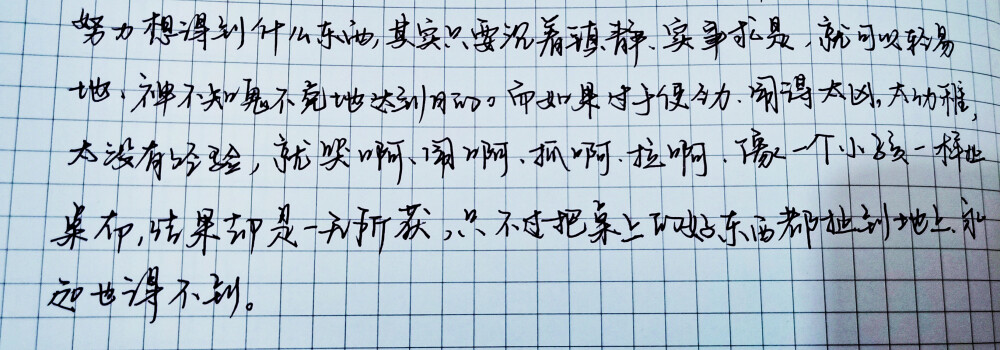 努力想得到什么东西,其实只要沉着镇静、实事求是,就可以轻易
地、神不知鬼不觉地达到目的。而如果过于使劲,闹得太凶,太幼稚,
太没有经验,就哭啊、闹啊、抓啊、拉啊,像一个小孩一样扯
桌布,结果却是一无所获,只不过把桌上的好东西都扯到地上,永
远也得不到。